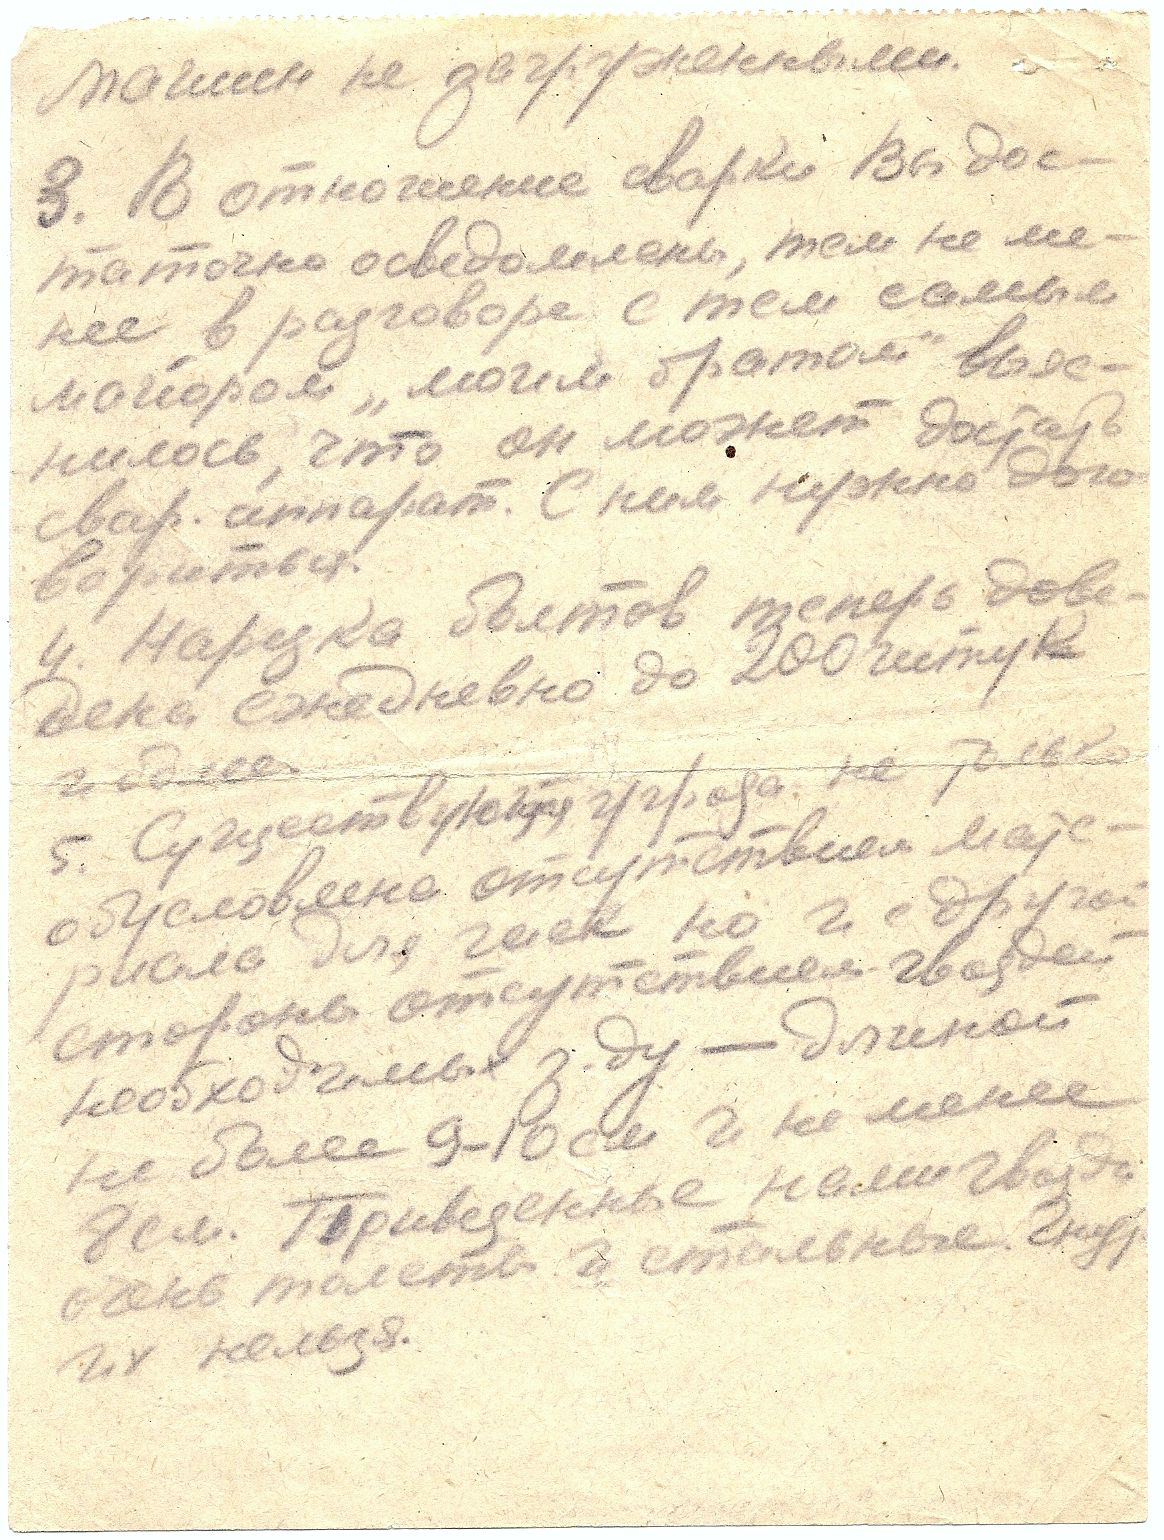 машин не загруженными.
3. В отношение сварки Вы дос-
таточно осведомлены, тем не ме-
нее в разговоре с тем самым
майором „моим братом" выяс-
нилось, что он может достать
свар. аппарат. С ним нужно дого
вориться.
4. Нарезка болтов теперь дове-
дена ежедневно до 200 штук
и более.
5. Существующая угроза не только
обусловлена отсутствием мате-
риала для гаек но и с другой
стороны отсутствием гвоздей
необходимых з-ду — длиной
не более 9-10 см и не менее
8 см. Привезенные нами гвозди
очень толсты и стальные.
их нельзя.